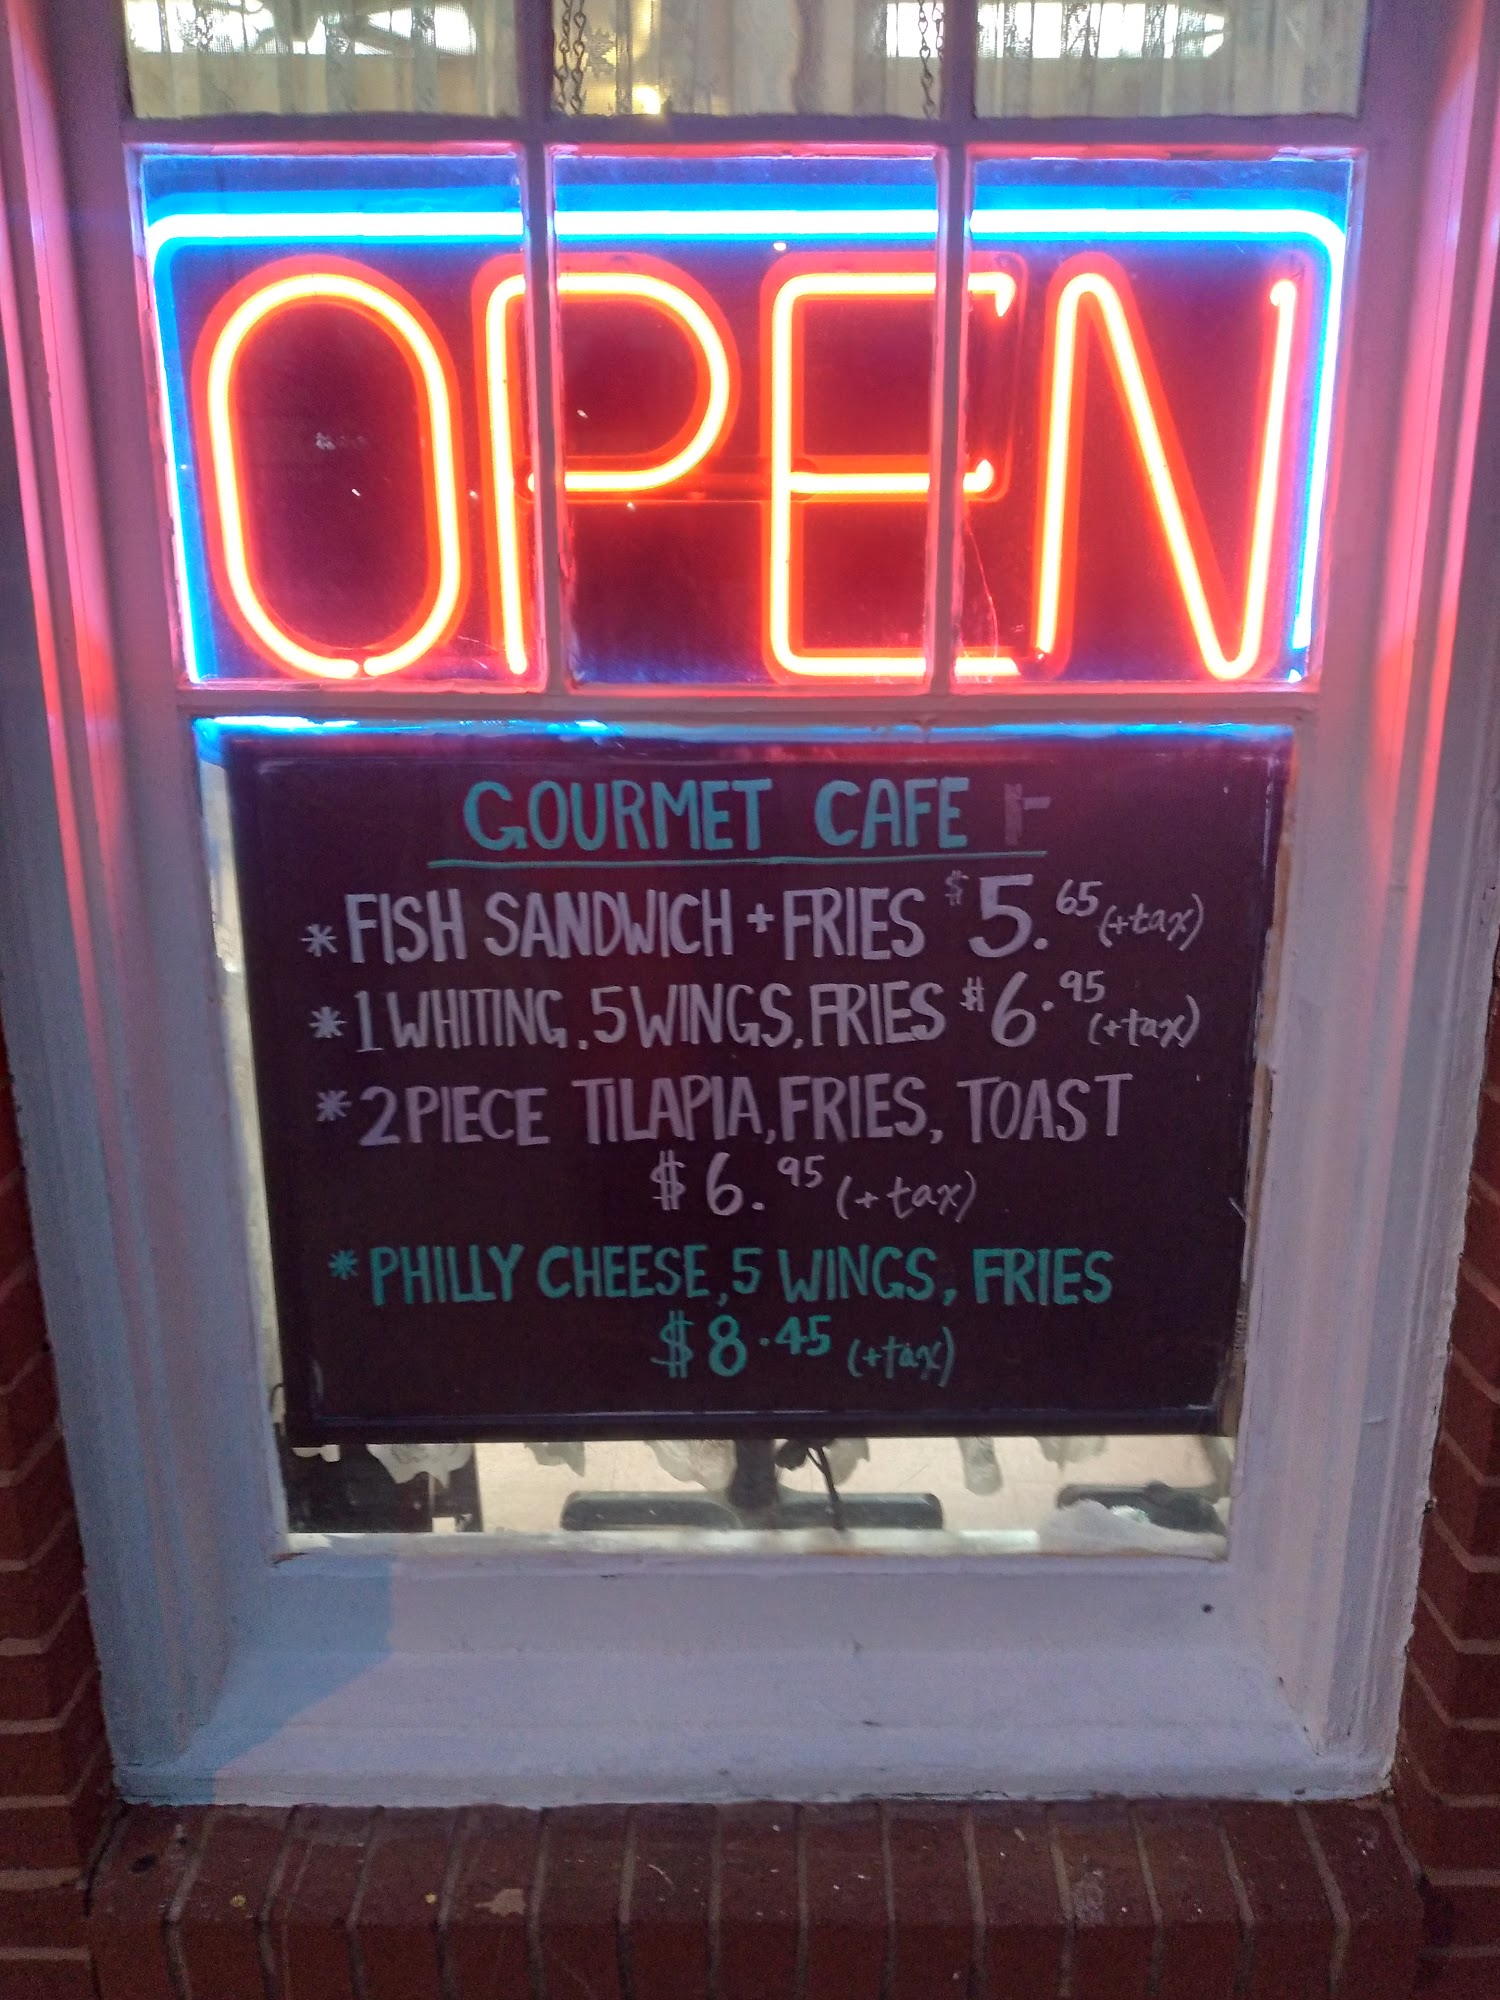 OPEN
GOURMET CAFE
* FISH SANDWICH + FRIES $5.65 (+tax)
* 1 WHITING, 5 WINGS, FRIES $6.95 (+tax)
* 2 PIECE TILAPIA, FRIES, TOAST
$6.95 (+tax)
* PHILLY CHEESE, 5 WINGS, FRIES
$8.45 (+tax)